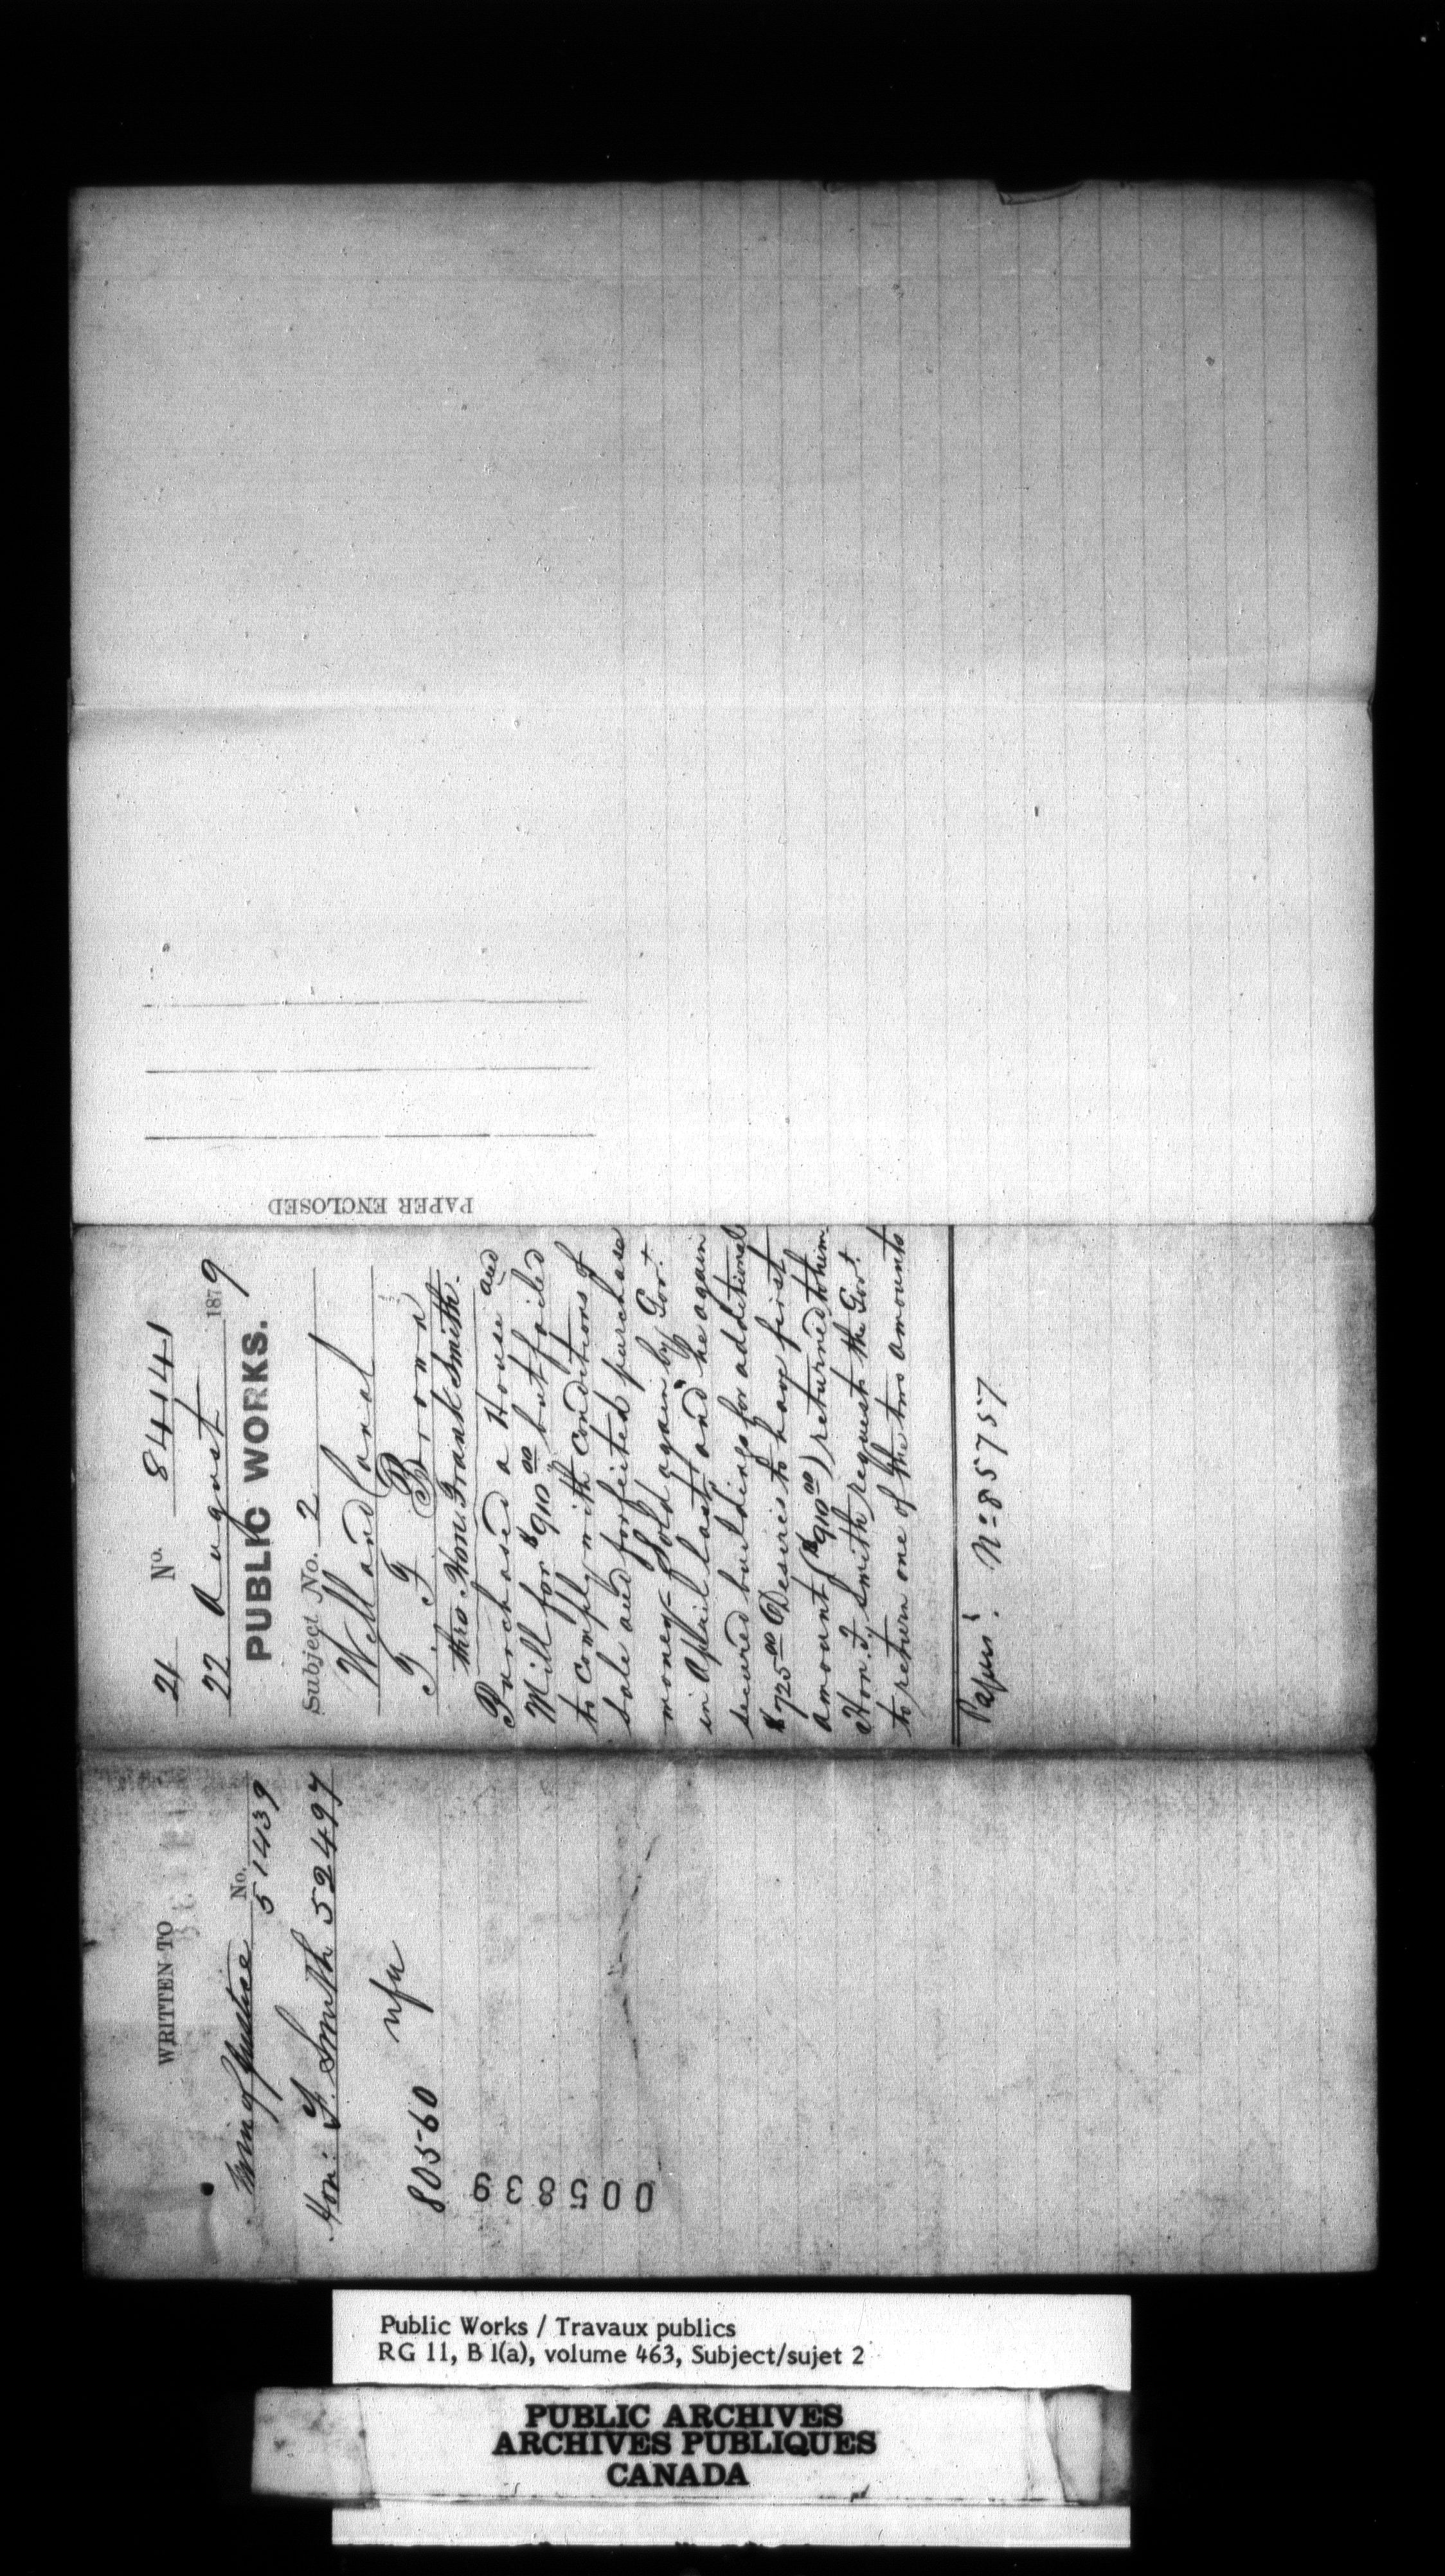 WRITTEN TO
No.
Min of Justice 51439
Hon: F. Smith 52497
80560 nfa
005839
21 No. 84141
22 August 1879
PUBLIC WORKS.
Subject No. 2
Welland Canal
T. F. Brown
thro Hon. Frank Smith.
Purchased a House and
Mill for $910 00 but failed
to comply with conditions of
sale and forfeited purchase
money - Sold again by Gov.t
in April last and he again
secured buildings for additional
$725 00 Desires to have first
amount ($910 00) returned to him
Hon. F. Smith requests the Gov.t
to return one of the two amounts
Papers. No 85757
PAPER ENCLOSED
Public Works / Travaux publics
RG 11, B 1(a), volume 463, Subject/sujet 2
PUBLIC ARCHIVES
ARCHIVES PUBLIQUES
CANADA